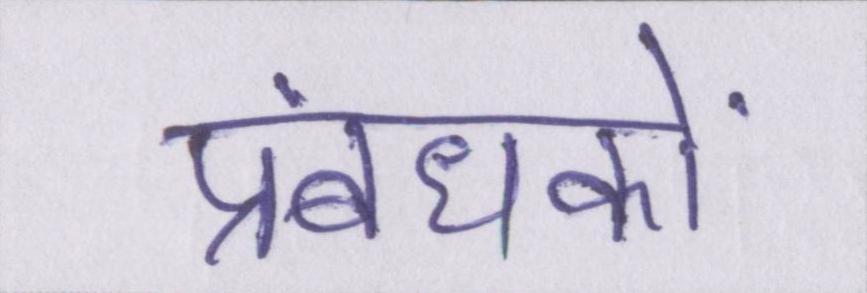 प्रंबधकों